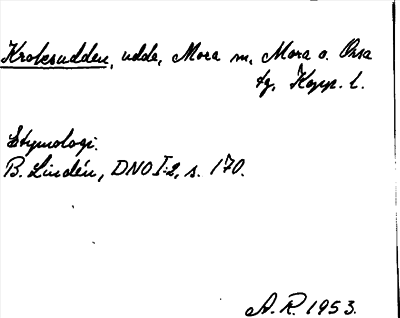 Kroksudden, udde, Mora sn, Mora o. Orsa
tg, Kopp. l.
Etymologi.
B. Lindén, DNO I:2, s. 170.
A. R. 1953.